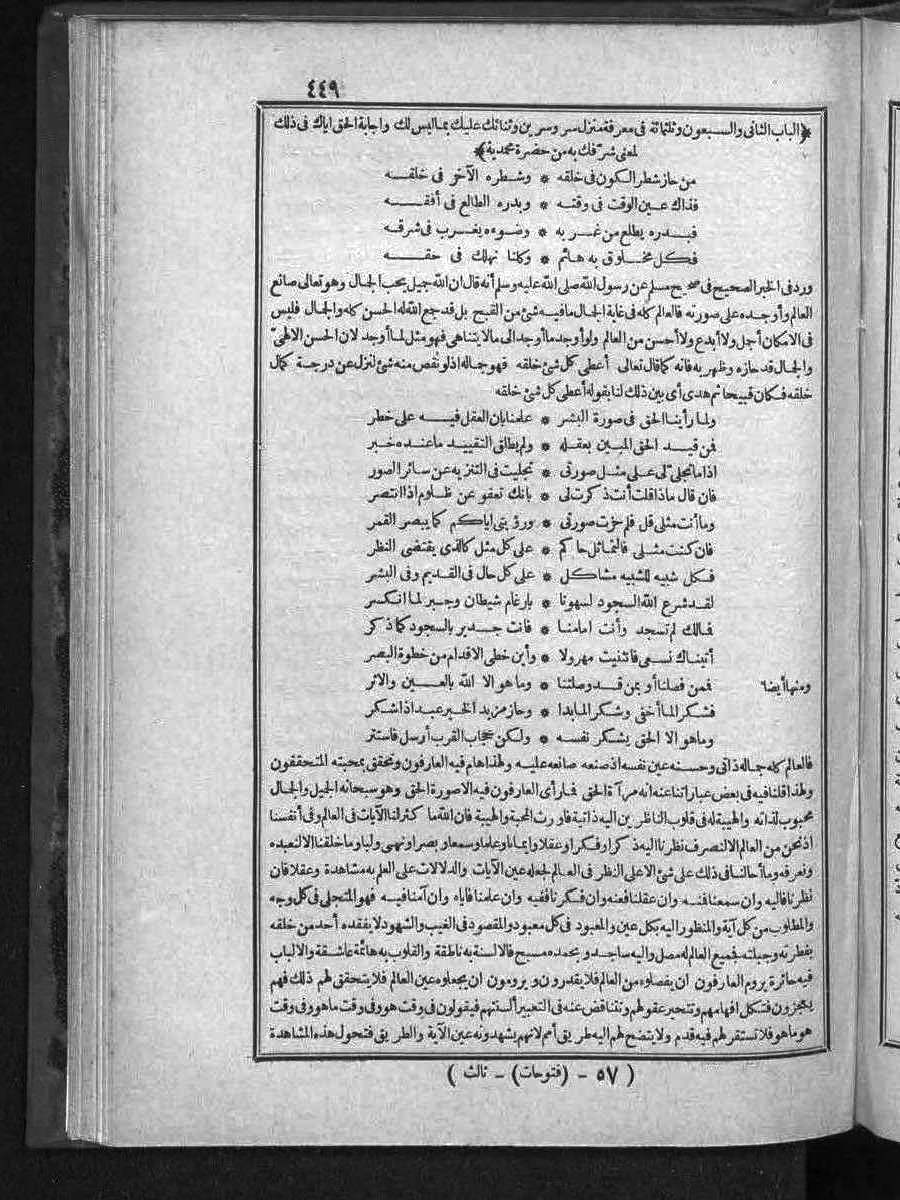 ٤٤٩
﴿الباب الثانى والسبعون وثلثمائة فى معرفة منزل سر وسرين وثنائك عليك بما ليس لك واجابة الحق اياك فى ذلك
لمعنى شرفك به من حضرة محمدية﴾
من حاز شطر الكون فى خلقه * وشطره الآخر فى خلقه
فذاك عين الوقت فى وقته * وبدره الطالع فى أفقه
فبدره يطلع من غربه * وضوءه يغرب فى شرقه
فكل مخلوق به هائم * وكلنا نهلك فى حقه
ورد فى الخبر الصحيح فى صحيح مسلم عن رسول الله صلى الله عليه وسلم أنه قال ان الله جيل يحب الجمال وهو تعالى صانع
العالم وأوجده على صورته فالعالم كله فى غاية الجمال ما فيه شئ من القبح بل قد جع الله له الحسن كله والجمال فليس
فى الامكان أجل ولا أبدع ولا أحسن من العالم ولو أوجد ما أوجد الى ما لا يتناهى فهو مثل لما أوجد لان الحسن الالهىّ
والجمال قد حازه وظهر به فانه كما قال تعالى أعطى كل شئ خلقه فهو جماله اذ لو نقص منه شئ لنزل عن درجة كمال
خلقه فكان قبيحا ثم هدى أى بين ذلك لنا بقوله أعطى كل شئ خلقه
ولما رأينا الحق فى صورة البشر * علمنا بان العقل فيه على خطر
فمن قيد الحق المبين بعقله * ولم يطلق التقييد ما عنده خبر
اذا ما تجلى لى على مثل صورتى * تجليت فى التنزيه عن سائر الصور
فان قال ماذا قلت أنت ذكرت لى * بانك تعفو عن ظلوم اذا انتصر
وما أنت مثلى قل فلم حزت صورتى * ورؤيتى اياكم كما يبصر القمر
فان كنت مثلى فالتماثل حاكم * على كل مثل كالذى يقتضى النظر
فكل شبيه للشبيه مشاكل * على كل حال فى القديم وفى البشر
لقد شرع الله السجود لسهونا * بارغام شيطان وجبر لما انكسر
فمالك لم تسجد وأنت امامنا * فانت جدير بالسجود كما ذكر
أتيناك نسعى فانثنيت مهرولا * وأين خطى الاقدام من خطوة البصر
ومنها أيضا فمن فصلنا أو بمن قد وصلتنا * وما هو الا الله بالعين والاثر
فشكر لما أخفى وشكر لما بدا * وحاز مزيد الخير عبد اذا شكر
وما هو الا الحق يشكر نفسه * ولكن حجاب القرب أرسل فاستتر
فالعالم كله جماله ذاتى وحسنه عين نفسه اذ صنعه صانعه عليه ولهذا هام فيه العارفون وتحقق بمحبته المتحققون
ولهذا قلنا فيه فى بعض عباراتنا عنه انه مرآة الحق فما رأى العارفون فيه الا صورة الحق وهو سبحانه الجيل والجمال
محبوب لذاته والهيبة له فى قلوب الناظرين اليه ذاتية فاورث المحبة والهيبة فان الله ما كثر لنا الآيات فى العالم وفى أنفسنا
اذ نحن من العالم الا لنصرف نظرنا اليه ذكرا وفكرا وعقلا وايمانا وعلما وسمعا وبصرا ونهى ولبا وما خلقنا الا لنعبده
ونعرفه وما أحالنا فى ذلك على شئ الا على النظر فى العالم لجعله عين الآيات والدلالات على العلم به مشاهدة وعقلا فان
نظرنا فاليه وان سمعنا فمنه وان عقلنا فعنه وان فكرنا ففيه وان علمنا فاياه وان آمنا فبه فهو المتجلى فى كل وجه
والمطلوب من كل آية والمنظور اليه بكل عين والمعبود فى كل معبود والمقصود فى الغيب والشهود لا يفقده أحد من خلقه
بفطرته وجبلته فجميع العالم له مصل واليه ساجد وبحمده مسبح فالالسنة به ناطقة والقلوب به هائمة عاشقة والالباب
فيه حائرة يروم العارفون ان يفصلوه من العالم فلا يقدرون ويرومون ان يجعلوه عين العالم فلا يتحقق لهم ذلك فهم
يعجزون فتكل افهامهم وتتحير عقولهم وتتناقض عنه فى التعبير ألسنتهم فيقولون فى وقت هو وفى وقت ما هو وفى وقت
هو ما هو فلا تستقر لهم فيه قدم ولا يتضح لهم اليه طريق أمم لانهم يشهدونه عين الآية والطريق فتحول هذه المشاهدة
( ٥٧ - (فتوحات) - ثالث )